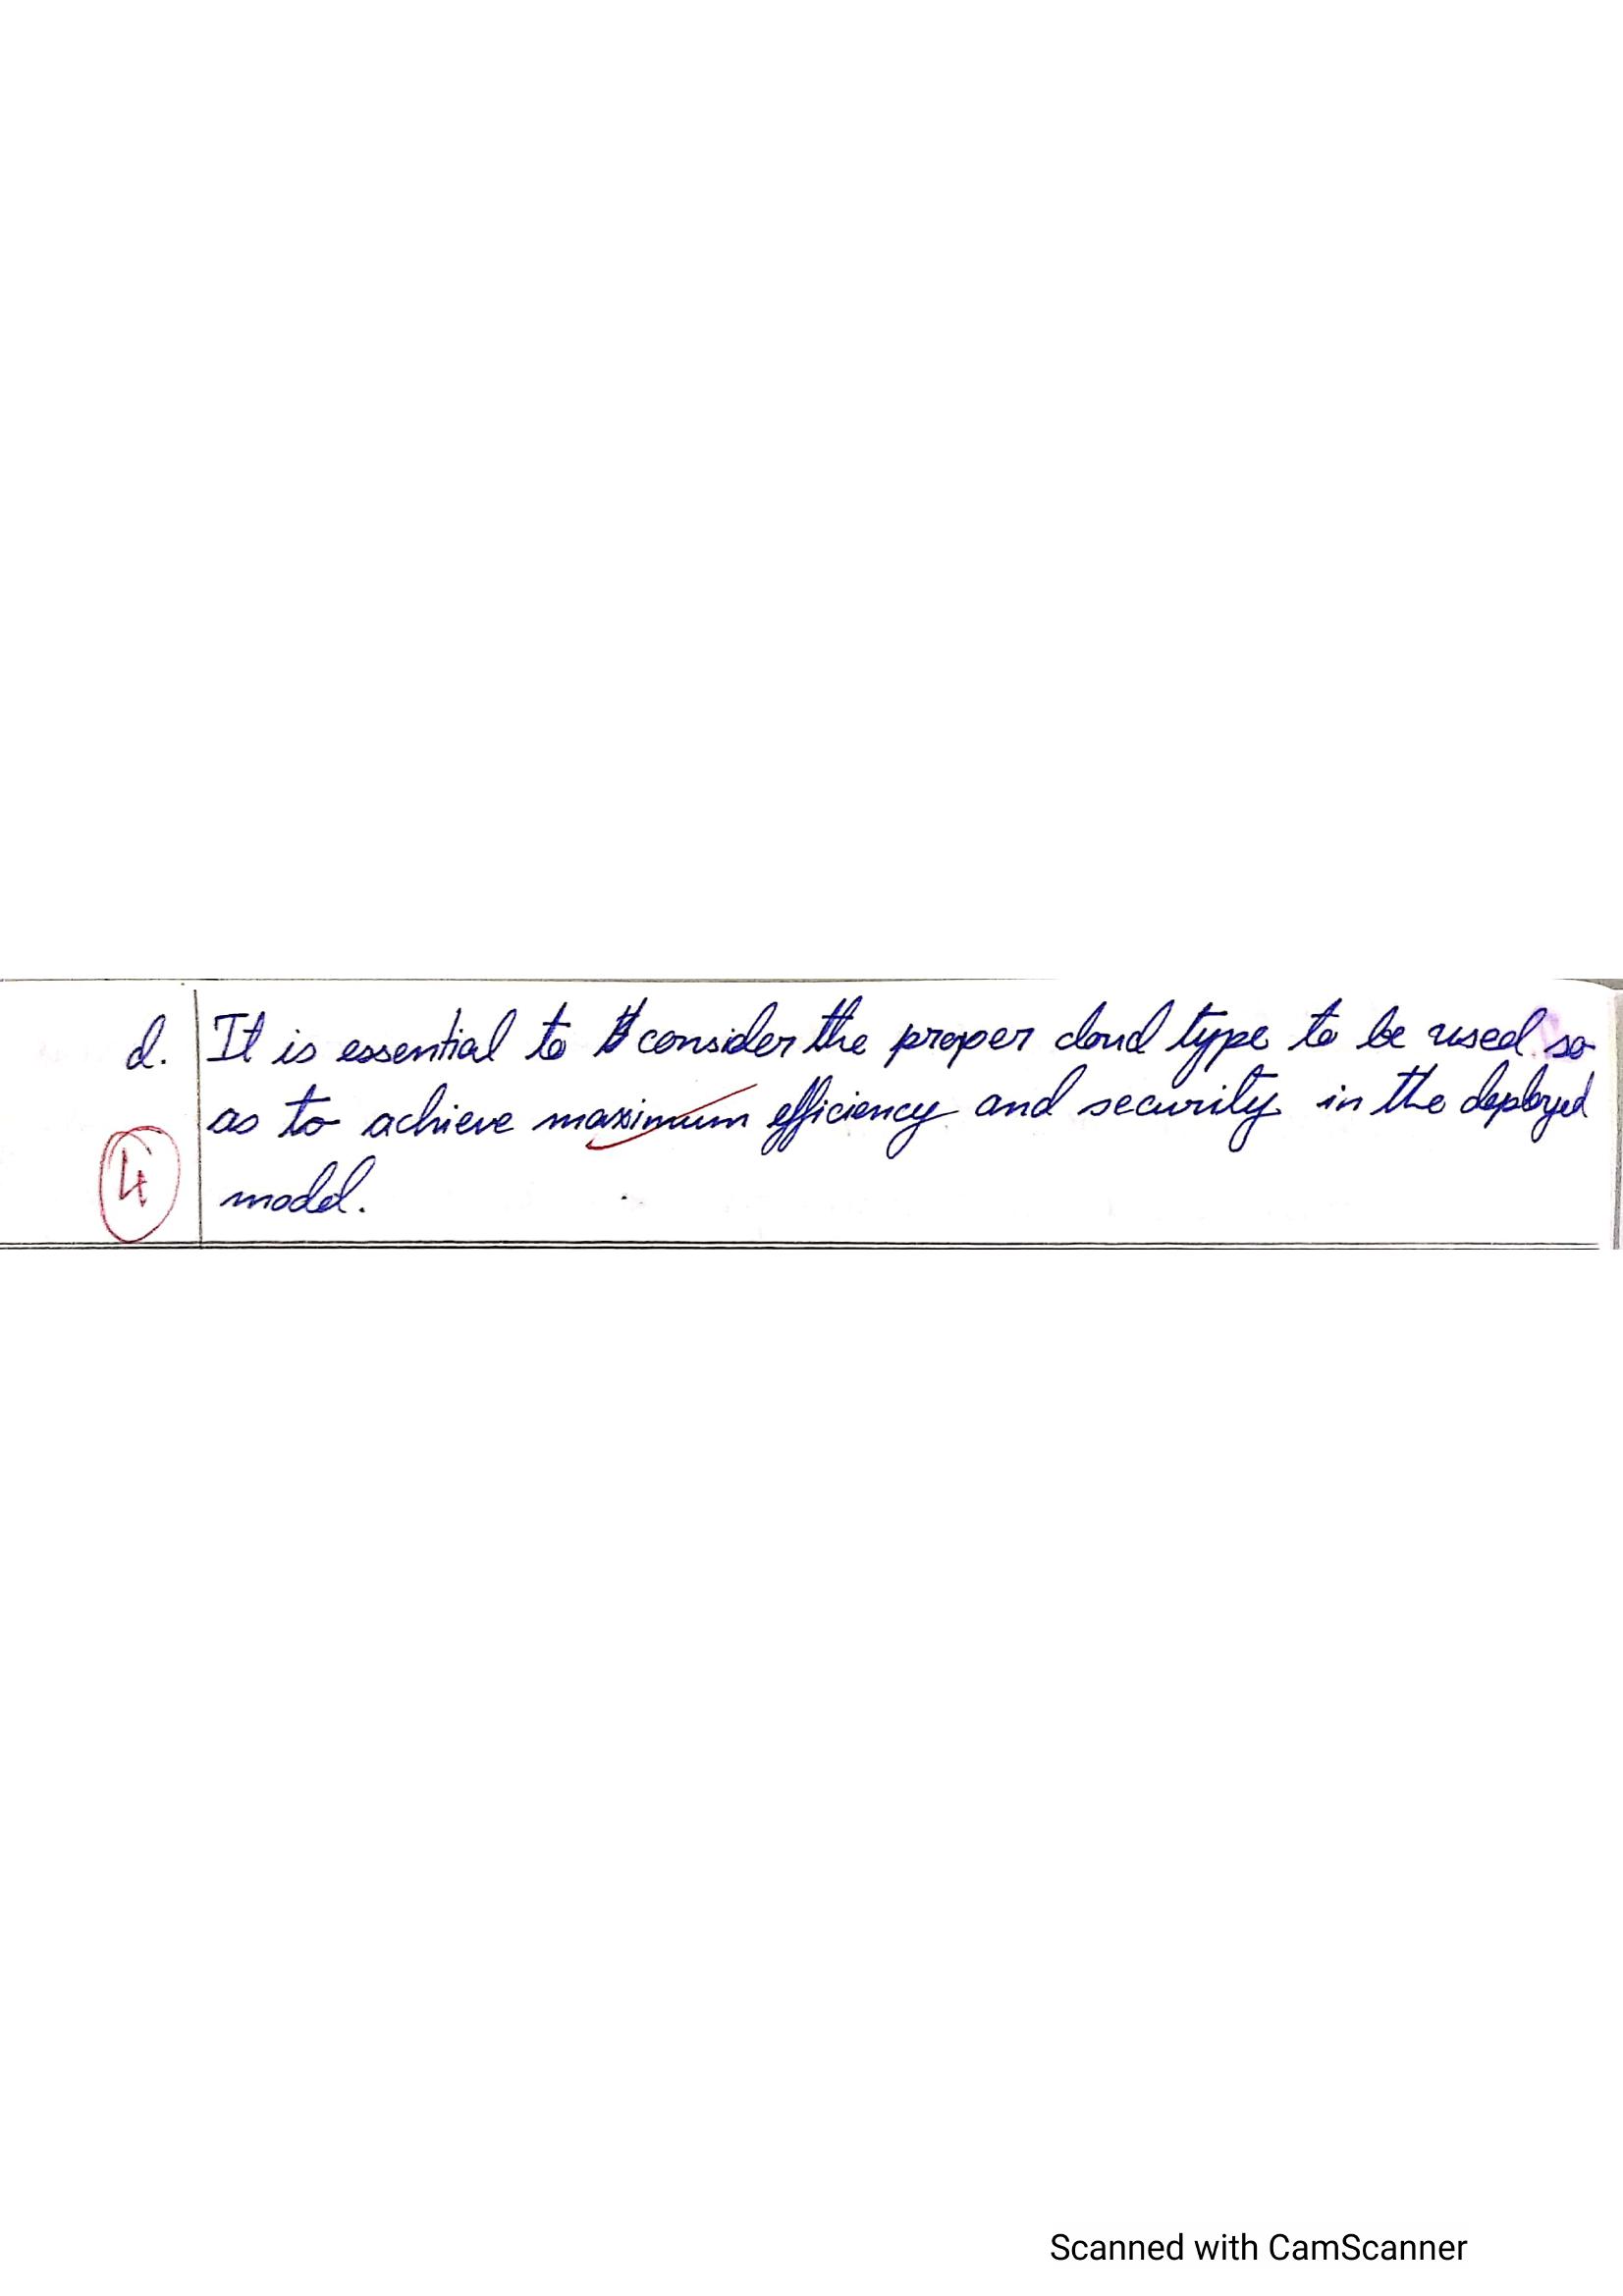 d. It is essential to consider the proper cloud type to be used so
as to achieve maximum efficiency and security in the deployed
4 model.
Scanned with CamScanner